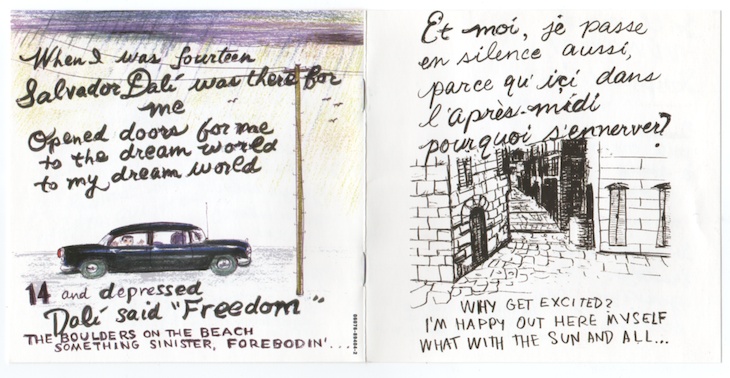 When I was fourteen
Salvador Dalí was there for
me
Opened doors for me
to the dream world
to my dream world
14 and depressed
Dalí said "Freedom"
THE BOULDERS ON THE BEACH
SOMETHING SINISTER, FOREBODIN'...
Et moi, je passe
en silence aussi,
parce qu'içi dans
l'après-midi
pourquoi s'ennerver?
WHY GET EXCITED?
I'M HAPPY OUT HERE MYSELF
WHAT WITH THE SUN AND ALL...